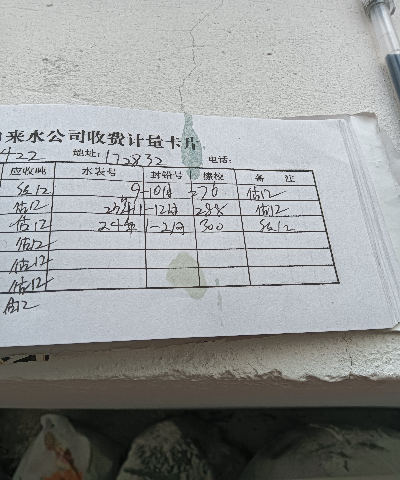 来水公司收费计量卡片
422 地址: 172832 电话:
应收吨 水表号 封铅号 橡校 备 注
估12 9-10月 276 估12
估12 23年11-12月 288 估12
估12 24年1-2月 300 估12
估12
估12
估12
估12